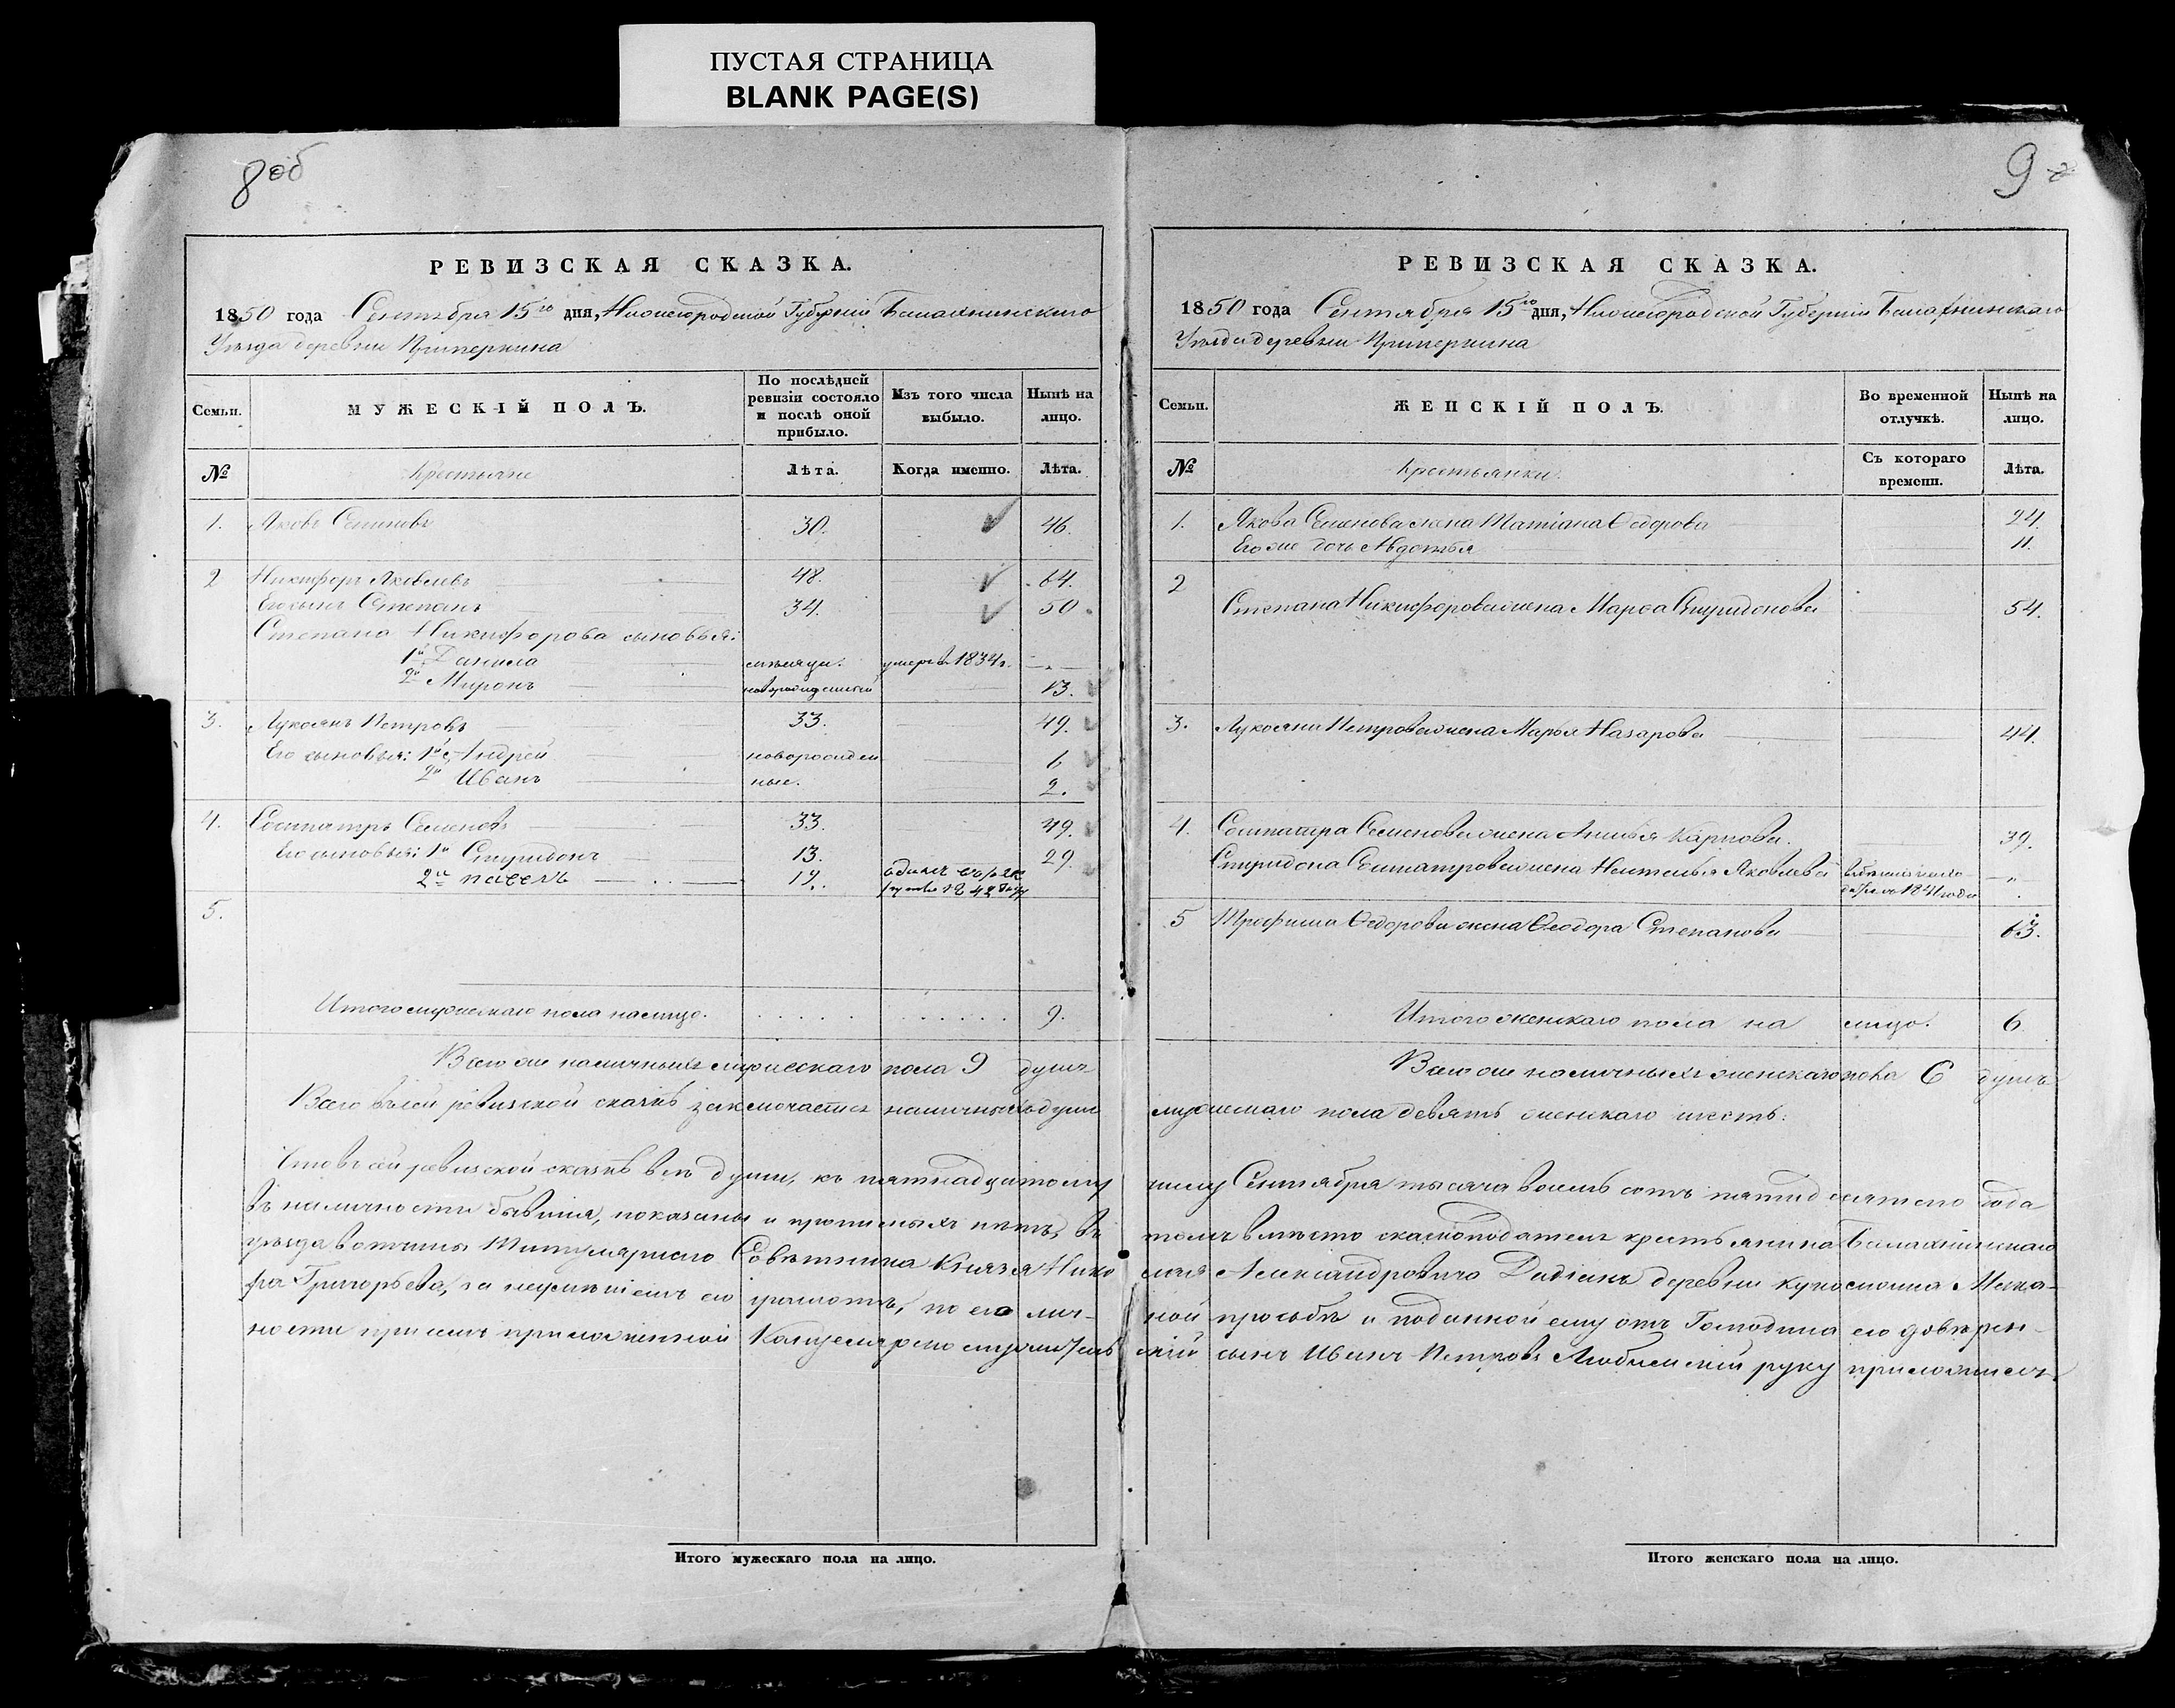 ПУСТАЯ СТРАНИЦА
BLANK PAGE(S)
8 об
РЕВИЗСКАЯ СКАЗКА.
1850 года Сентября 15го дня, Нижегородской Губерніи Балахнинскаго
Уѣзда деревни
Семьи.
МУЖЕСКІЙ ПОЛЪ.
По послѣдней
ревизіи состояло
и послѣ оной
прибыло.
Изъ того числа
выбыло.
Нынѣ на
лицо.
№
Крестьяне
Лѣта.
Когда именно.
Лѣта.
1. Яковъ Семеновъ 30. 46.
2 Никифоръ Яковлевъ 48. 64.
Его сынъ Степанъ 34. 50.
Степана Никифорова сыновья:
1й Данила умеръ въ 1834 г. — „ —
2й Миронъ новорожденный 13.
3. Лукоянъ Петровъ 33. 49.
Его сыновья: 1й Андрей новорожден 6
2й Иванъ ные. 2.
4. Сосипатръ Семеновъ 33. 49.
Его сыновья: 1й Спиридонъ 13. 29.
2й Павелъ 12.
5.
Итого мужескаго пола на лицо. 9.
Всего же наличныхъ мужескаго пола 9 душъ
Всего въ сей ревизской сказкѣ заключается наличныхъ душъ
Что въ сей ревизской сказкѣ всѣ души, къ пятнадцатому
въ наличности бывшія, показаны и прописныхъ нѣтъ, въ
уѣзда вотчины Титулярнаго Совѣтника Князя Нико
ра Григорьева, за неумѣніемъ его грамотѣ, по его лич-
ности при семъ приложенной Канцелярско служитель
Итого мужескаго пола на лицо.
9
РЕВИЗСКАЯ СКАЗКА.
1850 года Сентября 15го дня, Нижегородской Губерніи Балахнинскаго
Уѣзда деревни
Семьи.
ЖЕНСКІЙ ПОЛЪ.
Во временной
отлучкѣ.
Нынѣ на
лицо.
№
Крестьянки.
Съ котораго
времени.
Лѣта.
1. Якова Семенова жена Татіана Ѳедорова 24.
Его же дочь Авдотья 11.
2
Степана Никифорова жена Марѳа Спиридонова 54.
3. Лукояна Петрова жена Марья Назарова 44.
4. Сосипатра Семенова жена Анисья Карпова. 39.
Спиридона Сосипатрова жена Настасья Яковлева — „
съ 1841 года
5 Трефима Ѳедорова жена Ѳеодора Степанова 63.
Итого женскаго пола на лицо. 6.
Всего же наличныхъ женскаго пола 6 душъ
мужескаго пола девять женскаго шесть.
числу Сентября тысяча восемь сотъ пятидесятаго года
томъ вмѣсто сказкоподателя крестьянина Балахнинскаго
лая Александровича Дадіанъ деревни
ной просьбѣ и поданной ему отъ Господина его довѣрен-
скій сынъ Иванъ Петровъ Любимскій руку приложилъ.
Итого женскаго пола на лицо.